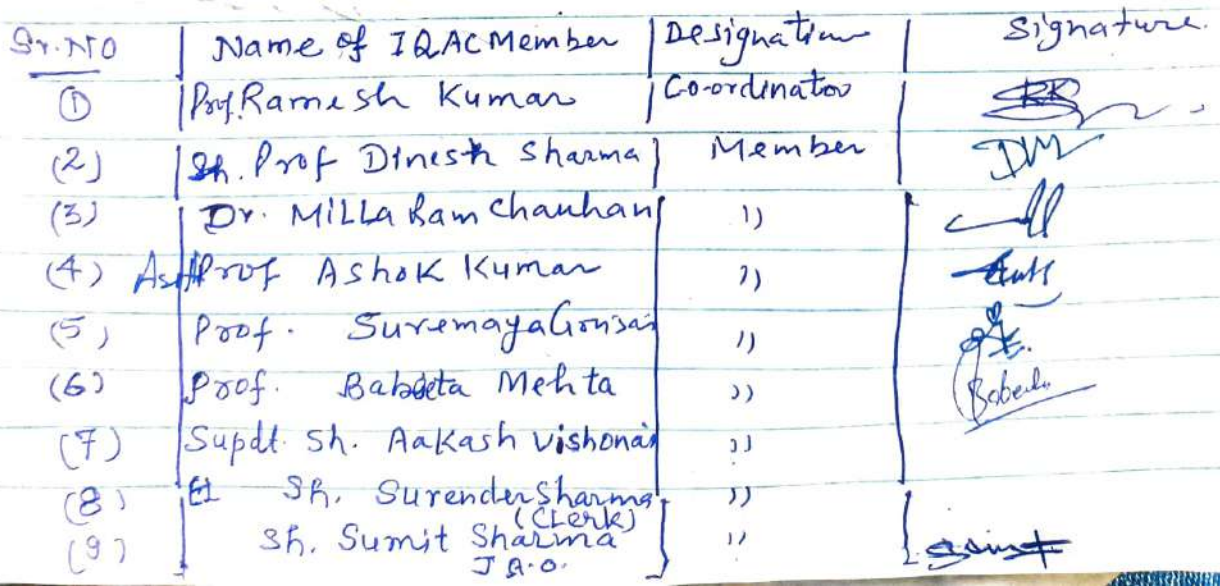 Sr. NO Name of IQAC Member Designation Signature.
① Prof. Ramesh Kumar Co-ordinator RK
(2) Sh. Prof Dinesh Sharma Member
(3) Dr. MiLLa Ram Chauhan ))
(4) Prof Ashok Kumar ))
(5) Prof. ))
(6) Prof. Babeeta Mehta )) Babeeta
(7) Supdt. Sh. Aakash ))
(8) Sh. Surender Sharma ))
(Clerk)
(9) Sh. Sumit Sharma ))
J.A.O.